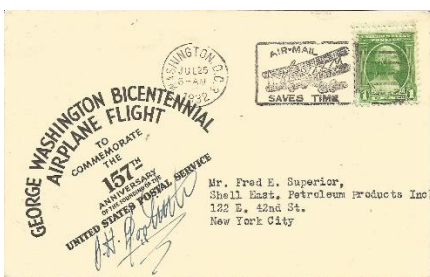 WASHINGTON, D.C.
JUL 25
1932
AIR-MAIL
SAVES TIME
1 1
GEORGE WASHINGTON BICENTENNIAL
AIRPLANE FLIGHT
TO
COMMEMORATE
THE
157TH
ANNIVERSARY
OF THE FOUNDING OF THE
UNITED STATES POSTAL SERVICE
Mr. Fred E. Superior,
Shell East. Petroleum Products Inc
122 E. 42nd St.
New York City